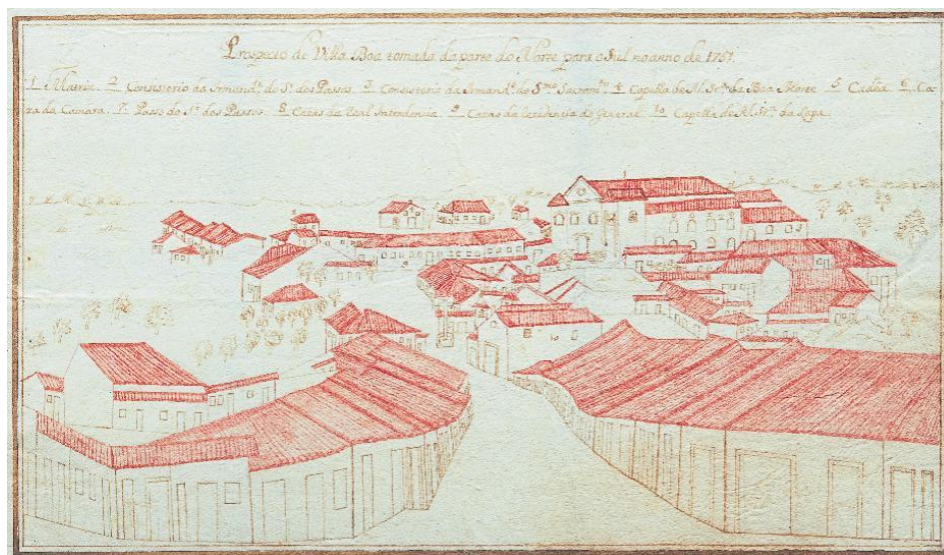 Prospecto de Villa Boa tomada da parte do Norte para o Sul no anno de 1751
1 Matriz 2 Consistorio da Irmand.e do S.r dos Passos 3 Consistorio da Irmand.e do S.mo Sacram.to 4 Capella de N. Sr.a da Boa Morte 5 Cadea 6 Ca-
za da Camara 7 Passo do S.r dos Passos 8 Cazas da Real Intendencia 9 Cazas da Rezidencia do General 10 Capella de N. Sr.a da Lapa